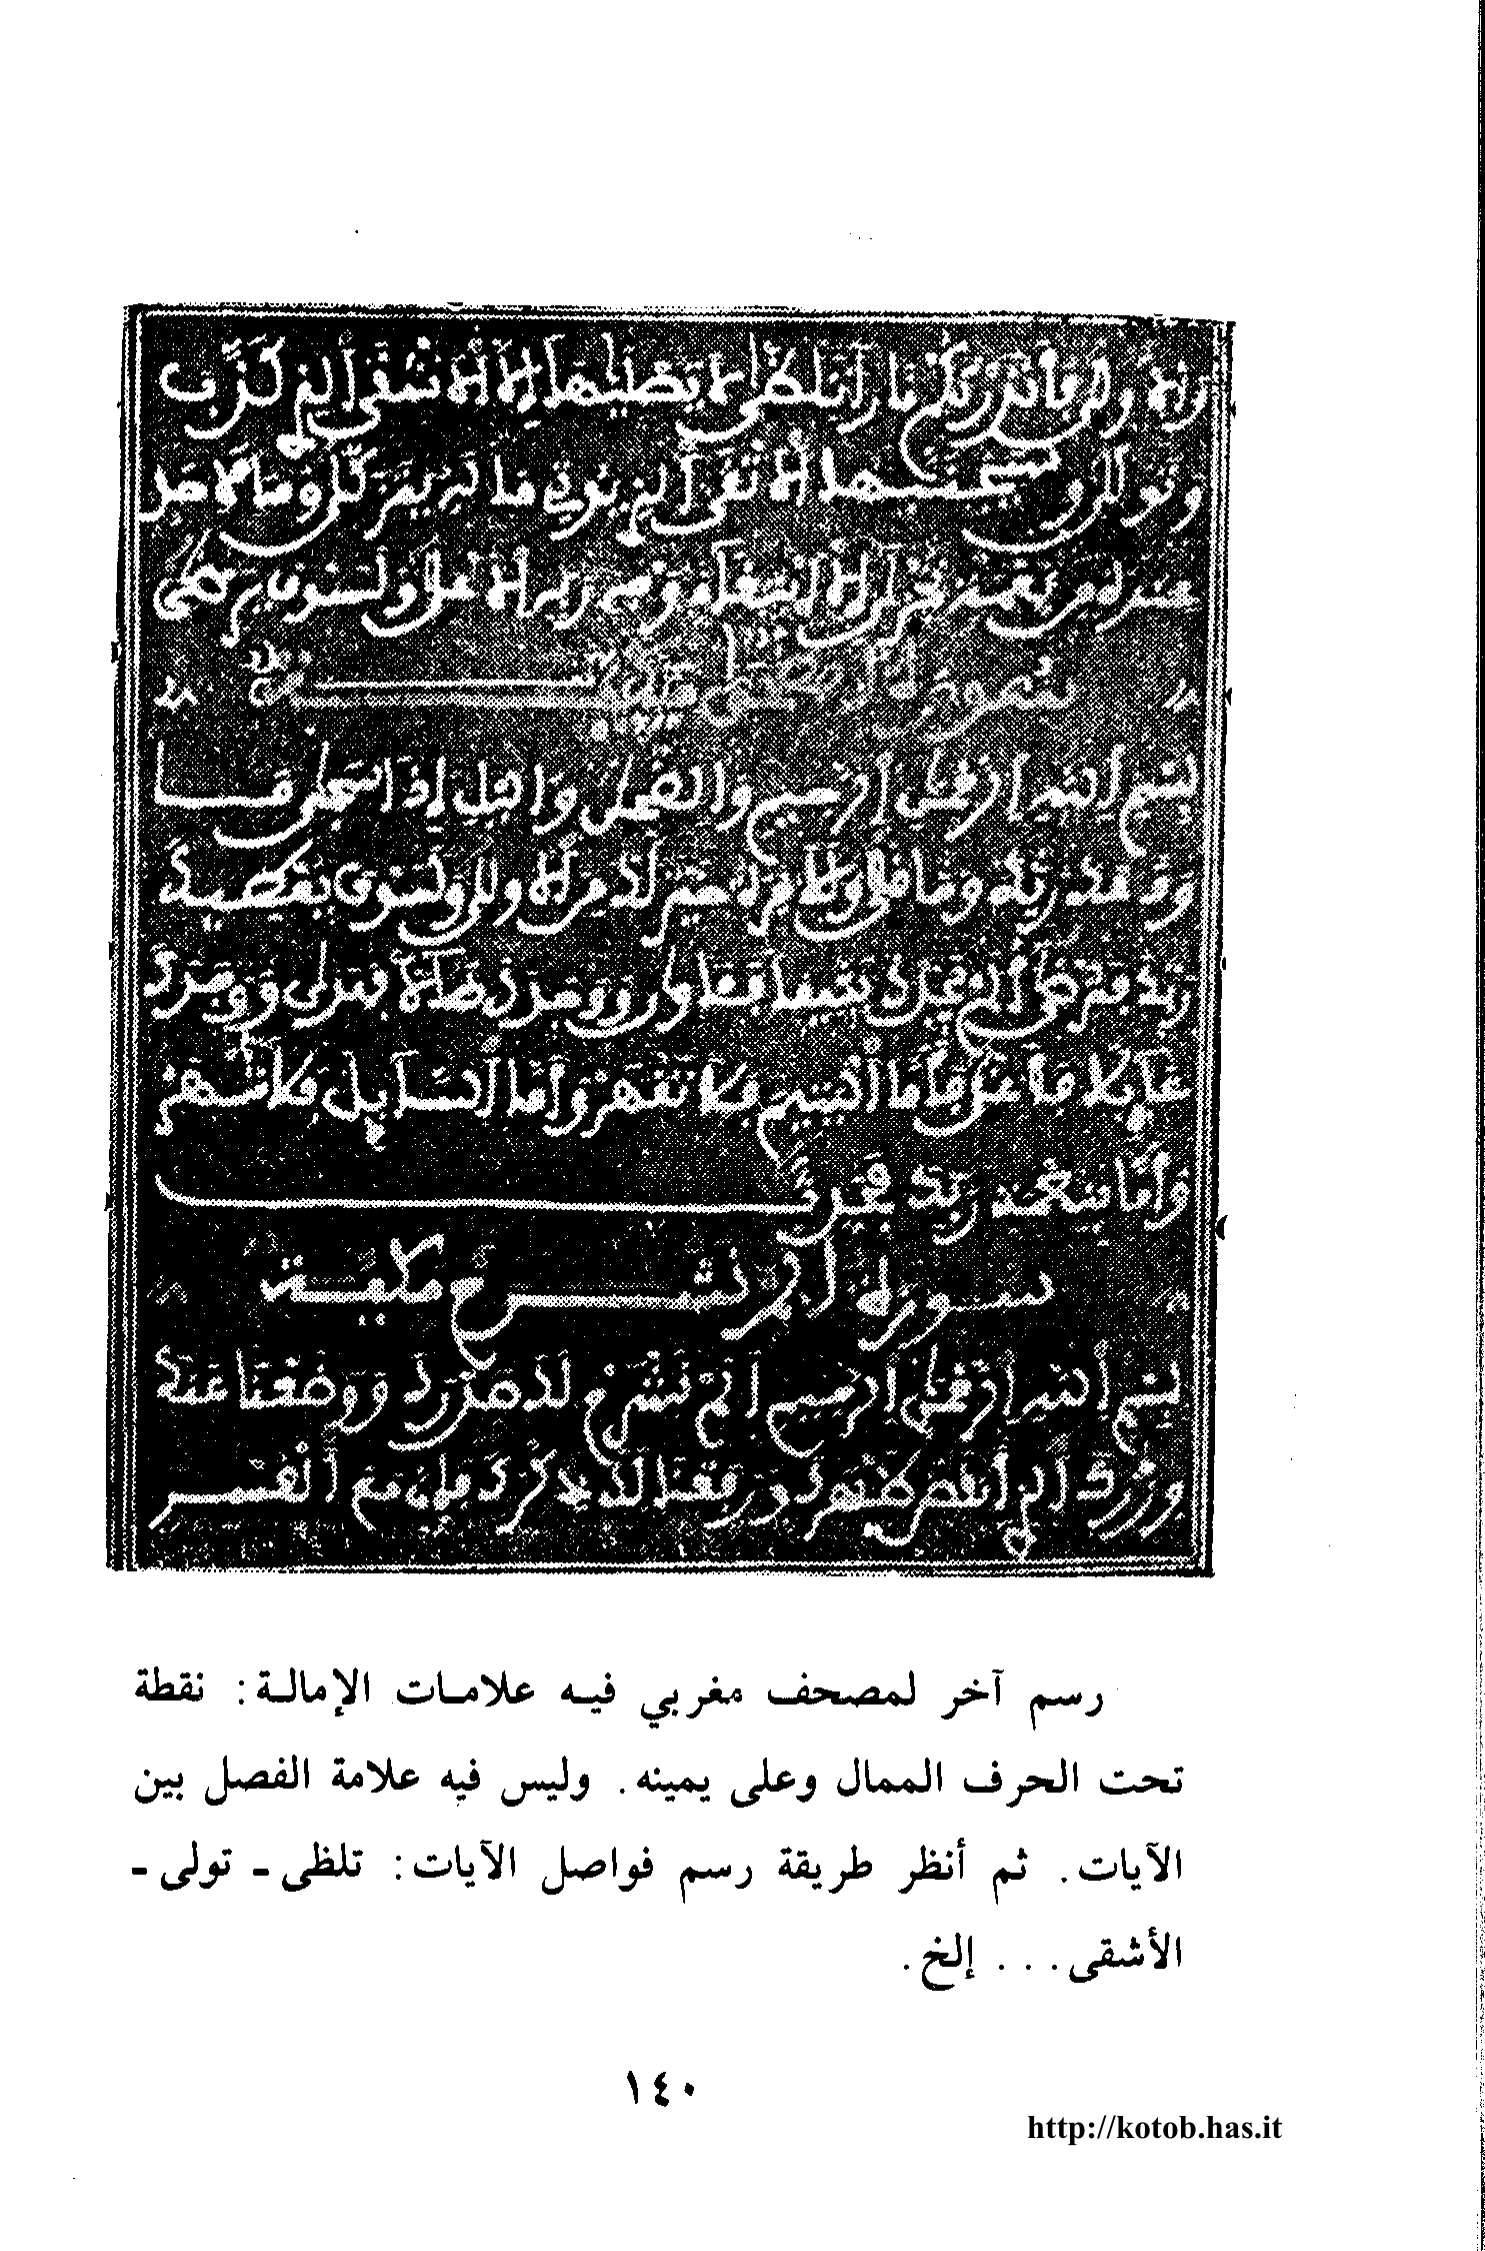 رة والاولى فأنذرتكم نارا تلظى لا يصليها إلا الأشقى الذي كذب
وتولى وسيجنبها الأتقى الذي يوتي ماله يتزكى وما لأحد
عنده من نعمة تجزى إلا ابتغاء وجه ربه الأعلى ولسوف يرضى
سورة الضحى مكية
بسم الله الرحمن الرحيم والضحى واليل إذا سجى مـــا
ودعك ربك وما قلى وللاخرة خير لك من الاولى ولسوف يعطيك
ربك فترضى ألم يجدك يتيما فـاوى ووجدك ضالا فهدى ووجدك
عايلا فأغنى فأما اليتيم فلا تقهر وأما السايل فلا تنهر
وأما بنعمة ربك فحدث
سورة ألم نشرح مكية
بسم الله الرحمن الرحيم ألم نشرح لك صدرك ووضعنا عنك
وزرك الذي أنقض ظهرك ورفعنا لك ذكرك فإن مع العسر
رسم آخر لمصحف مغربي فيه علامات الإمالة: نقطة
تحت الحرف الممال وعلى يمينه. وليس فيه علامة الفصل بين
الآيات. ثم أنظر طريقة رسم فواصل الآيات: تلظى - تولى -
الأشقى... إلخ.
١٤٠
http://kotob.has.it